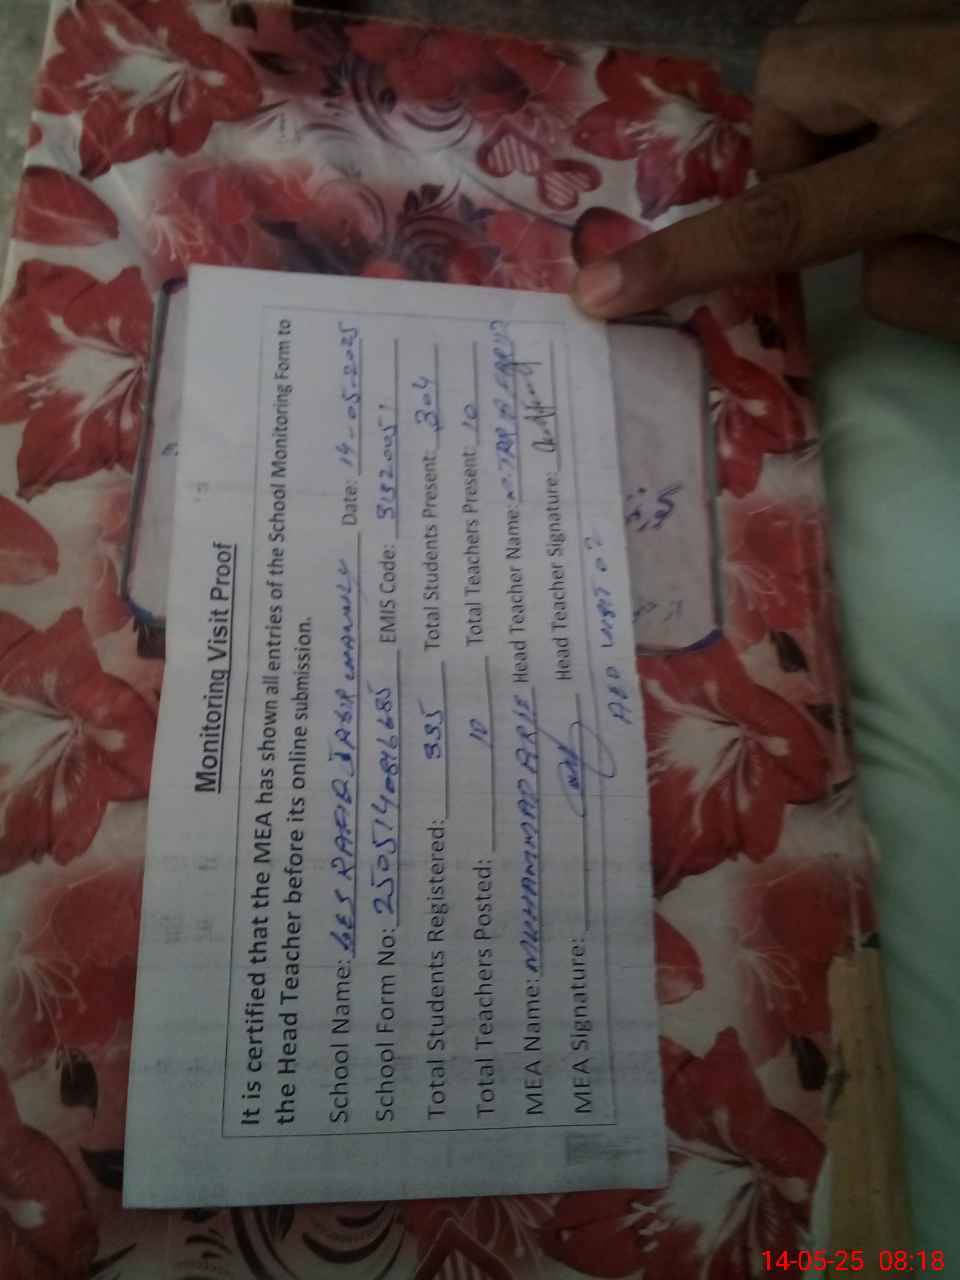 Monitoring Visit Proof
It is certified that the MEA has shown all entries of the School Monitoring Form to
the Head Teacher before its online submission.
School Name: GES RAFIQ JABIR Date: 14-05-2025
School Form No: 2505140846685 EMIS Code: 31320051
Total Students Registered: 335 Total Students Present: 304
Total Teachers Posted: 10 Total Teachers Present: 10
MEA Name: MUHAMMAD ARIF Head Teacher Name:
MEA Signature: Head Teacher Signature:
AEO VISIT 02
14-05-25 08:18